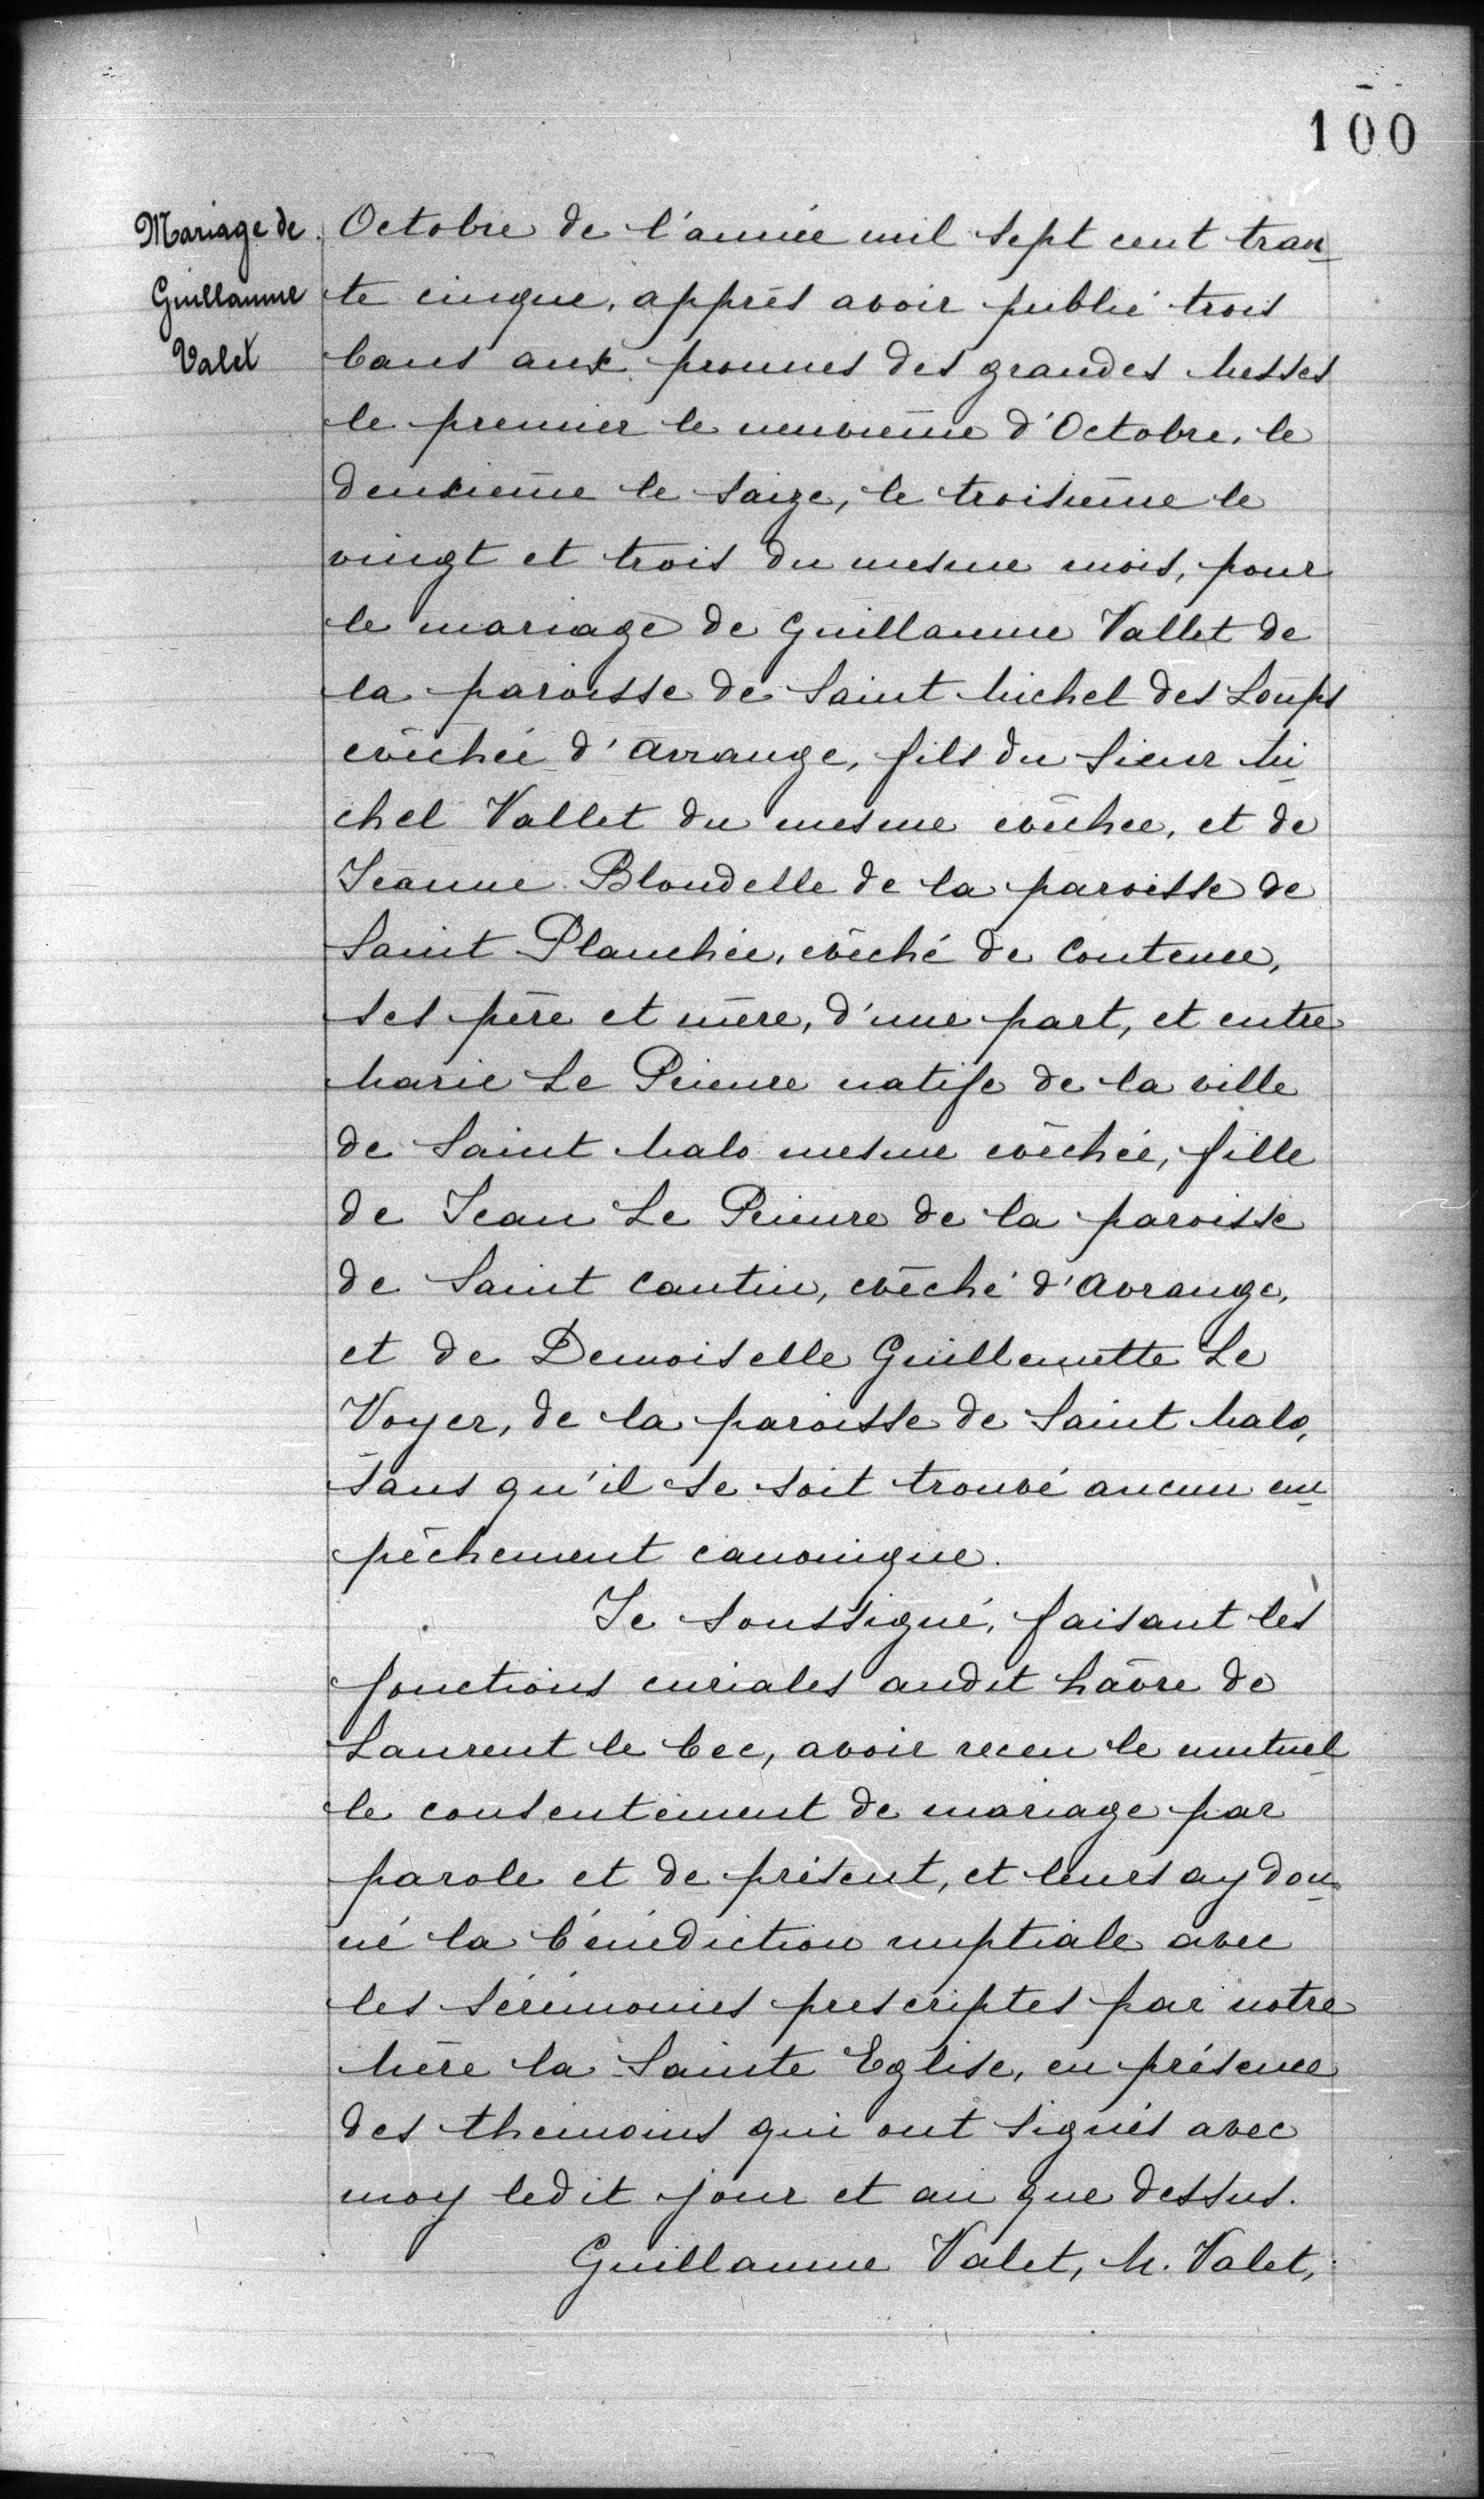 100
Mariage de
Guillaume
Valet
Octobre de l'année mil sept cent tran
te cinque, apprés avoir publié trois
bans aux pronnes des grandes Messes
le premier le neuvième d'Octobre, le
deuxieme le saize, le troisième le
vingt et trois du mesme mois, pour
le mariage de Guillaume Vallet de
la paroisse de Saint Michel des Loups
evêchée d'Avrange, fils du Sieur Mi
chel Vallet du mesme evêchee, et de
Jeanne Blondelle de la paroisse de
Saint Planchée, evêché de Coutence,
ses père et mère, d'une part, et entre
Marie Le Prieure natife de la ville
de Saint Malo mesme evêchée, fille
de Jean Le Prieure de la paroisse
de Saint Cantin, evêché d'Avrange,
et de Demoiselle Guillemette Le
Voyer, de la paroisse de Saint Malo,
sans qu'il se soit trouvé aucun em
pêchement canonique.
Je soussigné, faisant les
fonctions curiales audit hâvre de
Laurent le bec, avoir receu le mutuel
le consentement de mariage par
parole et de présent, et leurs ay don
né la bénédiction nuptiale avec
les sérémonies prescriptes par notre
Mère la Sainte Eglise, en présence
des themoins qui ont signés avec
moy ledit jour et an que dessus.
Guillaume Valet, M. Valet,